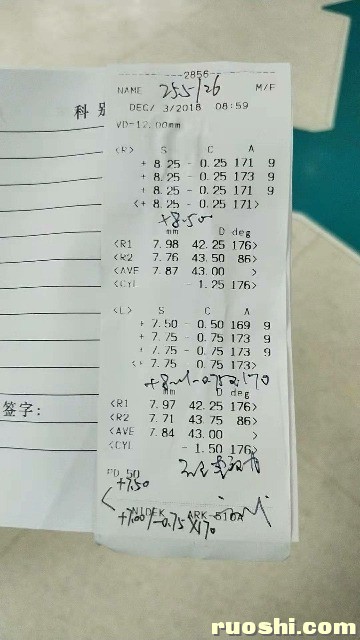 2856
NAME 255/26 M/F
科 别
DEC/ 3/2018 08:59
VD=12.00mm
<R> S C A
+ 8.25 - 0.25 171 9
+ 8.25 - 0.25 173 9
+ 8.25 - 0.25 171 9
<+ 8.25 - 0.25 171>
+8.50
mm D deg
<R1 7.98 42.25 176>
<R2 7.76 43.50 86>
<AVE 7.87 43.00 >
<CYL - 1.25 176>
<L> S C A
+ 7.50 - 0.50 169 9
+ 7.75 - 0.75 173 9
+ 7.75 - 0.75 173 9
<+ 7.75 - 0.75 173>
mm D deg
<R1 7.97 42.25 176>
<R2 7.71 43.75 86>
<AVE 7.84 43.00 >
<CYL - 1.50 176>
签字:
PD 50
+7.50
+7.00/-0.75×170
NIDEK ARK-510A
ruoshi.com